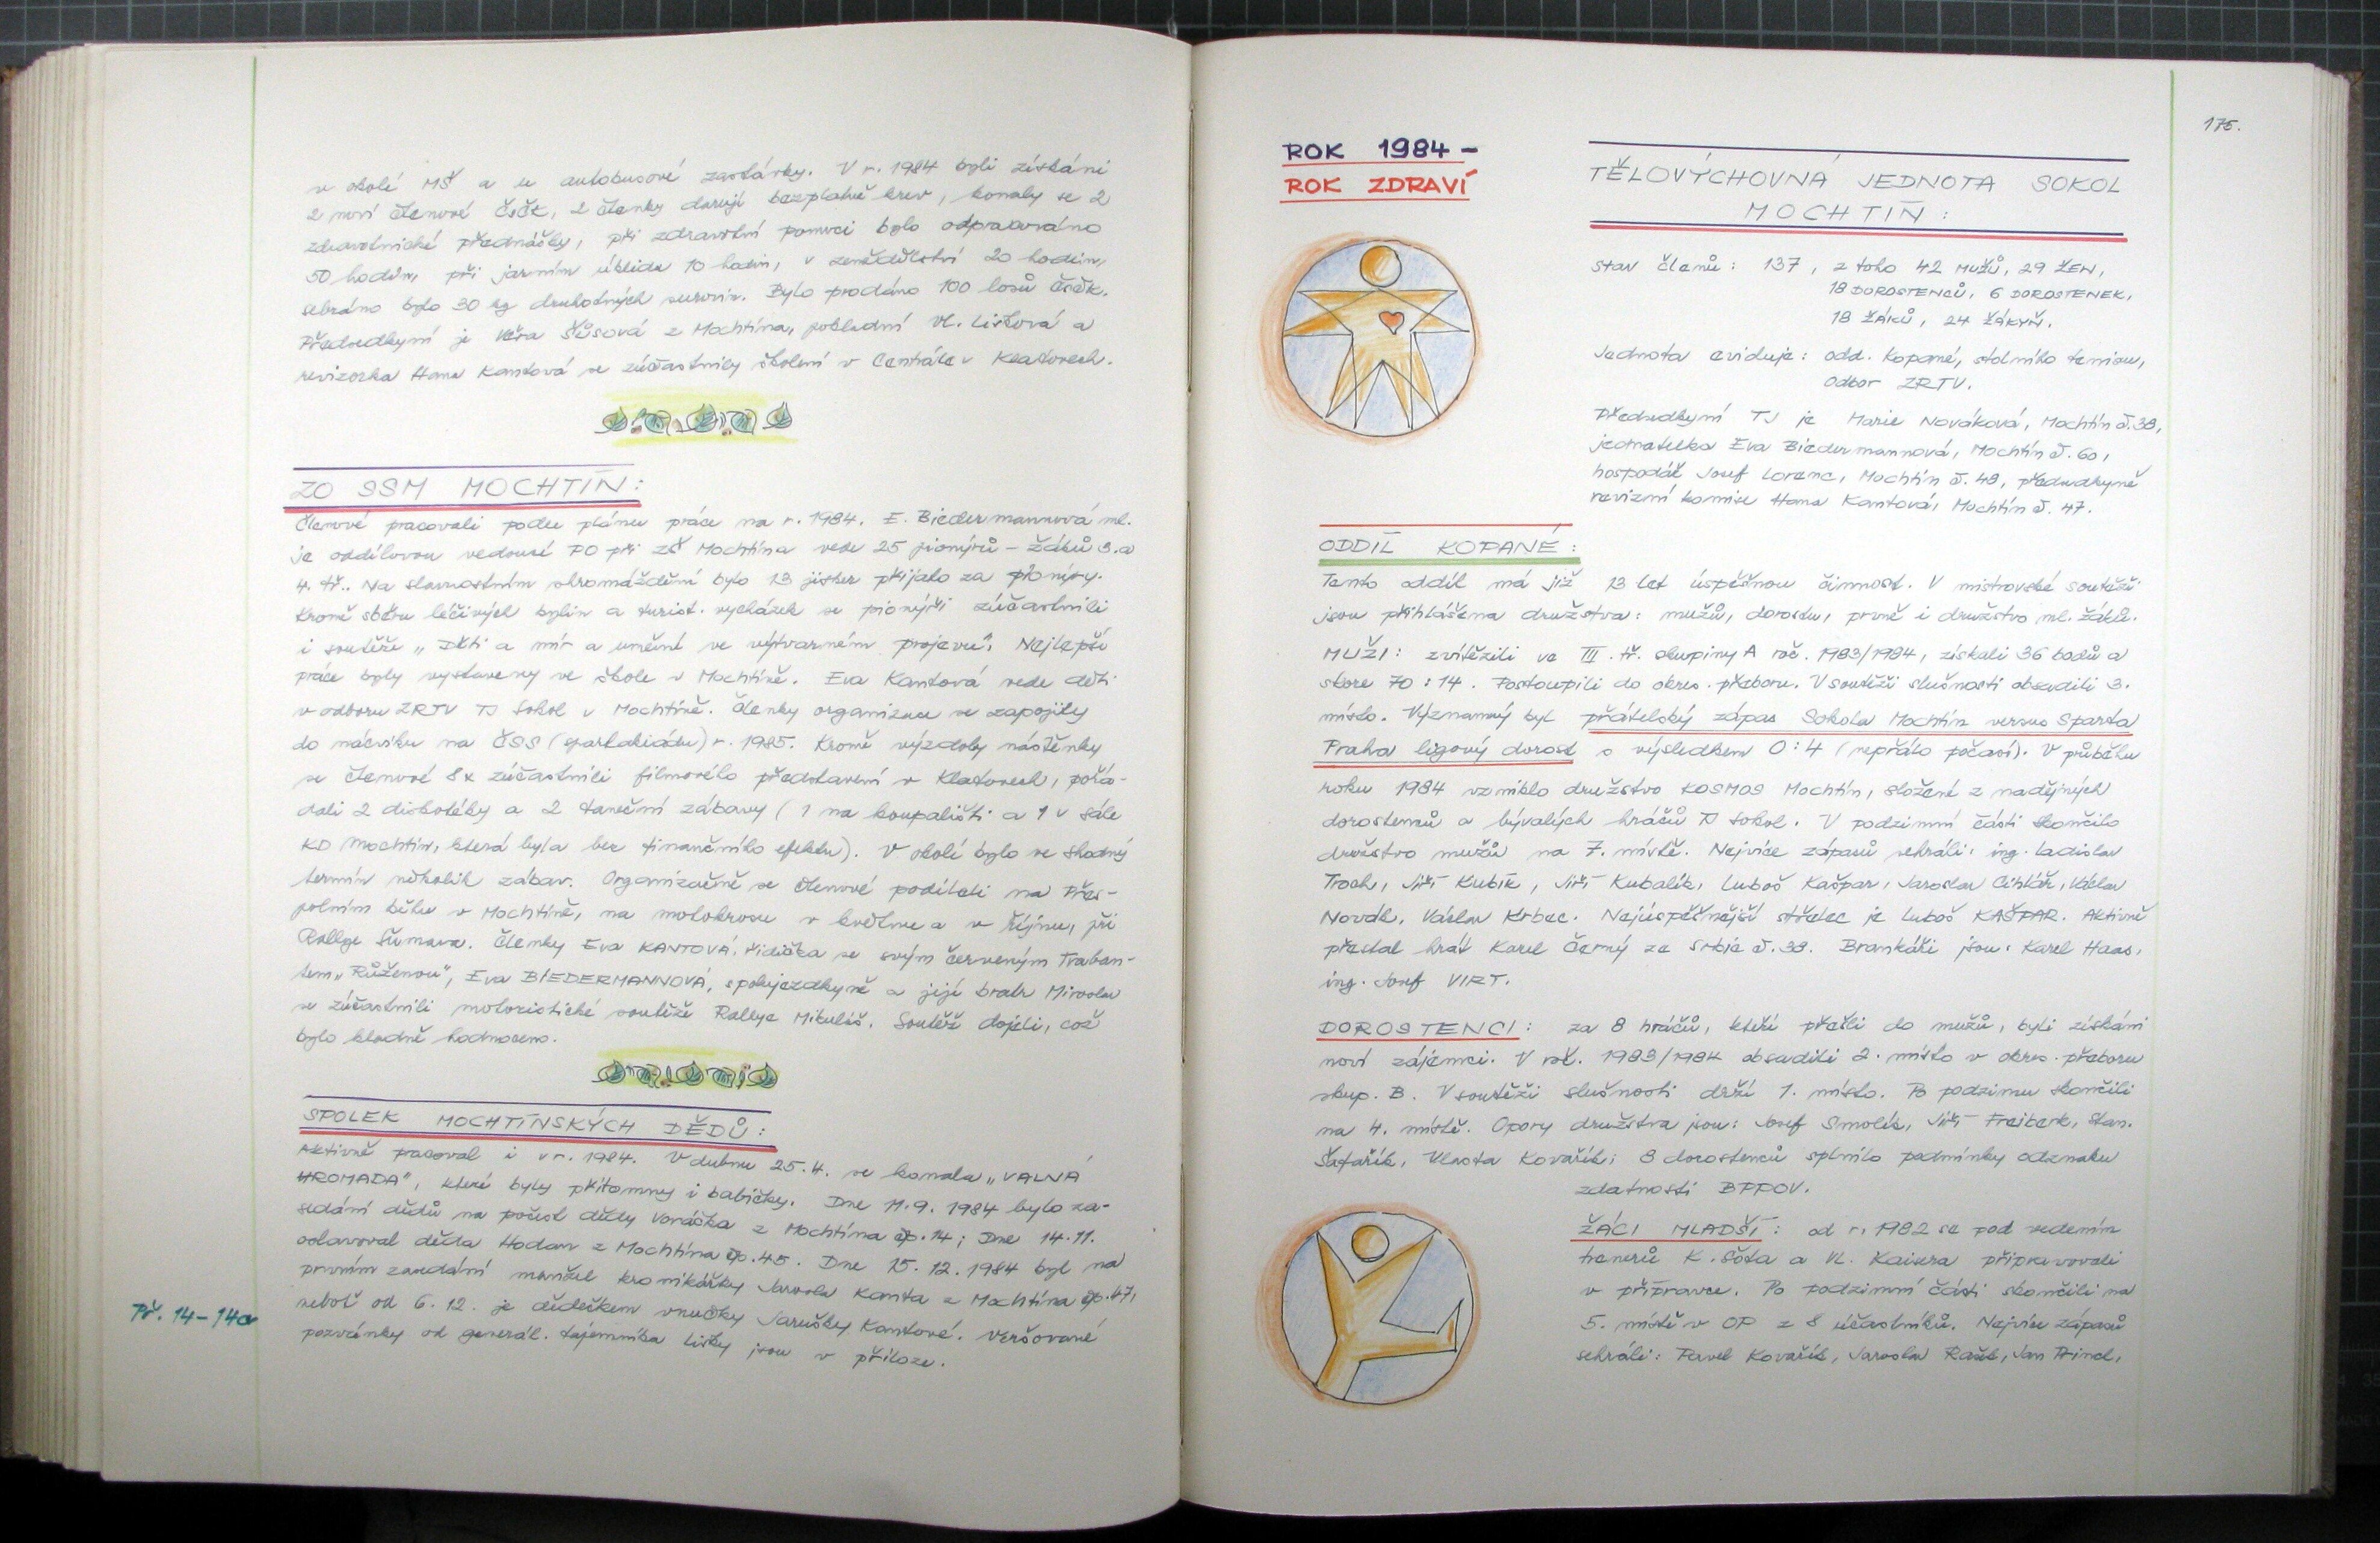 v okolí MŠ a u autobusové zastávky. V r. 1984 byli získáni
2 noví členové ČsČK, 2 členky darují bezplatně krev, konaly se 2
zdravotnické přednášky, při zdravotní pomoci bylo odpracováno
50 hodin, při jarním úklidu 10 hodin, v zemědělství 20 hodin,
sebráno bylo 30 kg druhotných surovin. Bylo prodáno 100 losů ČsČK.
Předsedkyní je Věra Šůsová z Mochtína, pokladní Vl. Lišková a
revizorka Hana Kantová se zúčastnily školení v Centrále v Klatovech.
ZO SSM MOCHTÍN:
Členové pracovali podle plánu práce na r. 1984. E. Biedermannová ml.
je oddílovou vedoucí PO při ZŠ Mochtína vede 25 pionýrů - žáků 3. a
4. tř.. Na slavnostním shromáždění bylo 13 jisker přijato za pionýry.
Kromě sběru léčivých bylin a turist. vycházek se pionýři zúčastnili
i soutěže „Děti a mír a umění ve výtvarném projevu". Nejlepší
práce byly vystaveny ve škole v Mochtíně. Eva Kantová vede děti
v odboru ZRTV TJ Sokol v Mochtíně. Členky organizace se zapojily
do nácviku na ČSS (spartakiádu) r. 1985. Kromě výzdoby nástěnky
se členové 8x zúčastnili filmového představení v Klatovech, pořá-
dali 2 diskotéky a 2 taneční zábavy (1 na koupališti a 1 v sále
KD Mochtín, která byla bez finančního efektu). V okolí bylo ve shodný
termín několik zábav. Organizačně se členové podíleli na Přes-
polním běhu v Mochtíně, na motokrosu v květnu a v říjnu, při
Rallye Šumava. Členky Eva KANTOVÁ, řidička se svým červeným Traban-
tem „Růženou", Eva BIEDERMANNOVÁ, spolujezdkyně a její bratr Miroslav
se zúčastnili motoristické soutěže Rallye Mikuláš. Soutěž dojeli, což
bylo kladně hodnoceno.
SPOLEK MOCHTÍNSKÝCH DĚDŮ:
Aktivně pracoval i v r. 1984. V dubnu 25.4. se konala „VALNÁ
HROMADA", které byly přítomny i babičky. Dne 11.9. 1984 bylo za-
sedání dědů na počest dědy Voráčka z Mochtína čp. 14; Dne 14.11.
oslavoval děda Hodan z Mochtína čp. 45. Dne 15.12.1984 byl na
prvním zasedání manžel kronikářky Jaroslav Kanta z Mochtína čp. 47,
neboť od 6.12. je dědečkem vnučky Jarušky Kantové. Veršované
pozvánky od generál. tajemníka Lišky jsou v příloze.
Př. 14-14a
175.
ROK 1984 -
ROK ZDRAVÍ
TĚLOVÝCHOVNÁ JEDNOTA SOKOL
MOCHTÍN:
Stav členů: 137, z toho 42 MUŽŮ, 29 ŽEN,
18 DOROSTENCŮ, 6 DOROSTENEK,
18 ŽÁKŮ, 24 ŽÁKYŇ.
Jednota eviduje: odd. kopané, stolního tenisu,
Odbor ZRTV.
Předsedkyní TJ je Marie Nováková, Mochtín č. 38,
jednatelka Eva Biedermannová, Mochtín č. 60,
hospodář Josef Lorenc, Mochtín č. 49, předsedkyně
revizní komise Hana Kantová, Mochtín č. 47.
ODDÍL KOPANÉ:
Tento oddíl má již 13 let úspěšnou činnost. V mistrovské soutěži
jsou přihlášena družstva: mužů, dorostu, prvně i družstvo ml. žáků.
MUŽI: zvítězili ve III. tř. skupiny A roč. 1983/1984, získali 36 bodů a
skore 70:14. Postoupili do okres. přeboru. V soutěži slušnosti obsadili 3.
místo. Významný byl přátelský zápas Sokola Mochtín versus Sparta
Praha ligový dorost s výsledkem 0:4 (nepřálo počasí). V průběhu
roku 1984 vzniklo družstvo KOSMOS Mochtín, složené z nadějných
dorostenců a bývalých hráčů TJ Sokol. V podzimní části skončilo
družstvo mužů na 7. místě. Nejvíce zápasů sehráli: ing. Ladislav
Troch, Jiří Kubík, Jiří Kubalík, Luboš Kašpar, Jaroslav Cihlář, Václav
Novák, Václav Krbec. Nejúspěšnější střelec je Luboš KAŠPAR. Aktivně
přestal hrát Karel Černý ze Srbic č. 38. Brankáři jsou: Karel Haas,
ing. Josef VIRT.
DOROSTENCI: za 8 hráčů, kteří přešli do mužů, byli získáni
noví zájemci. V roč. 1983/1984 obsadili 2. místo v okres. přeboru
skup. B. V soutěži slušnosti drží 1. místo. Po podzimu skončili
na 4. místě. Opory družstva jsou: Josef Smolík, Jiří Freiberk, Stan.
Šafařík, Vlasta Kovařík; 8 dorostenců splnilo podmínky odznaku
zdatnosti BPPOV.
ŽÁCI MLADŠÍ: od r. 1982 se pod vedením
trenerů K. Šota a Vl. Kaisera připravovali
v přípravce. Po podzimní části skončili na
5. místě v OP z 8 účastníků. Nejvíce zápasů
sehráli: Pavel Kovařík, Jaroslav Jan